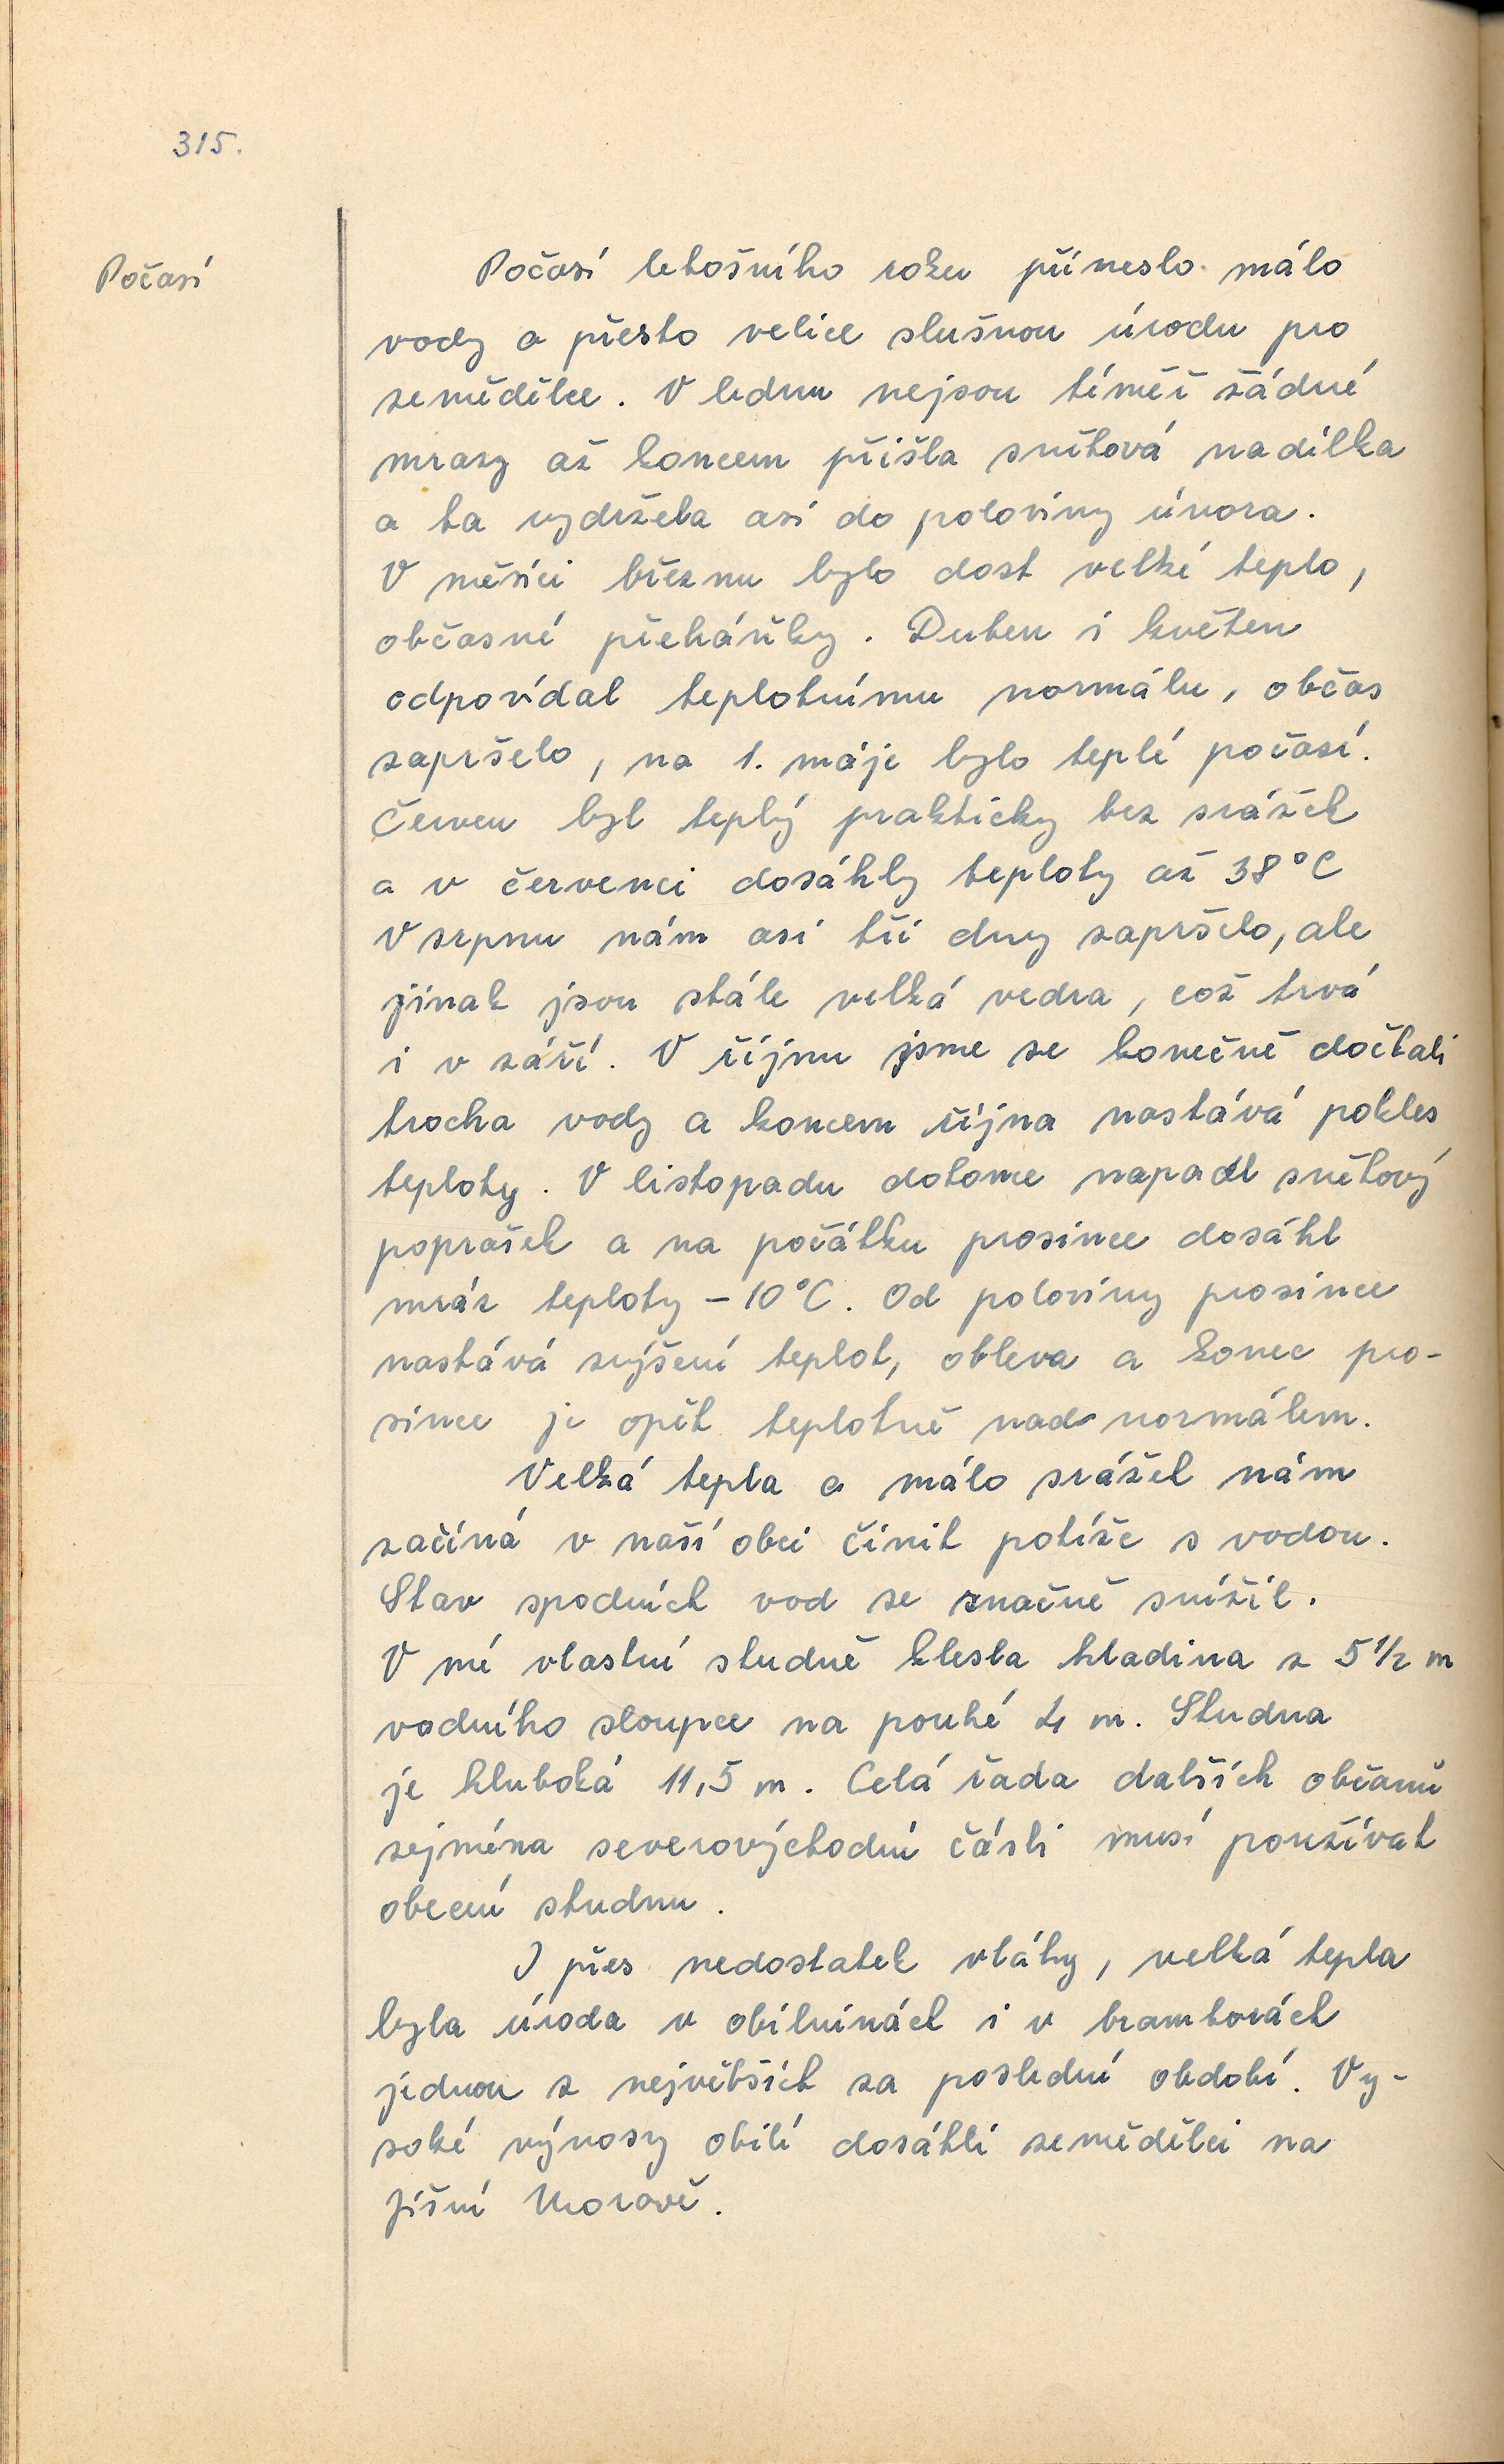 315.
Počasí
Počasí letošního roku přineslo málo
vody a přesto velice slušnou úrodu pro
zemědělce. V lednu nejsou téměř žádné
mrazy až koncem přišla sněhová nadílka
a ta vydržela asi do poloviny února.
V měsíci březnu bylo dost velké teplo,
občasné přeháňky. Duben i květen
odpovídal teplotnímu normálu, občas
zapršelo, na 1. máje bylo teplé počasí.
Červen byl teplý prakticky bez srážek
a v červenci dosáhly teploty až 38°C
V srpnu nám asi tři dny zapršelo, ale
jinak jsou stále velká vedra, což trvá
i v září. V říjnu jsme se konečně dočkali
trocha vody a koncem října nastává pokles
teploty. V listopadu dokonce napadl sněhový
poprašek a na počátku prosince dosáhl
mráz teploty -10°C. Od poloviny prosince
nastává zvýšení teplot, obleva a konec pro-
since je opět teplotně nad normálem.
Velká tepla a málo srážek nám
začíná v naší obci činit potíže s vodou.
Stav spodních vod se značně snížil.
V mé vlastní studně klesla hladina z 5 1/2 m
vodního sloupce na pouhé 4 m. Studna
je hluboká 11,5 m. Celá řada dalších občanů
zejména severovýchodní části musí používat
obecní studnu.
I přes nedostatek vláhy, velká tepla
byla úroda v obilninách i v bramborách
jednou z největších za poslední období. Vy-
soké výnosy obilí dosáhli zemědělci na
Jižní Moravě.